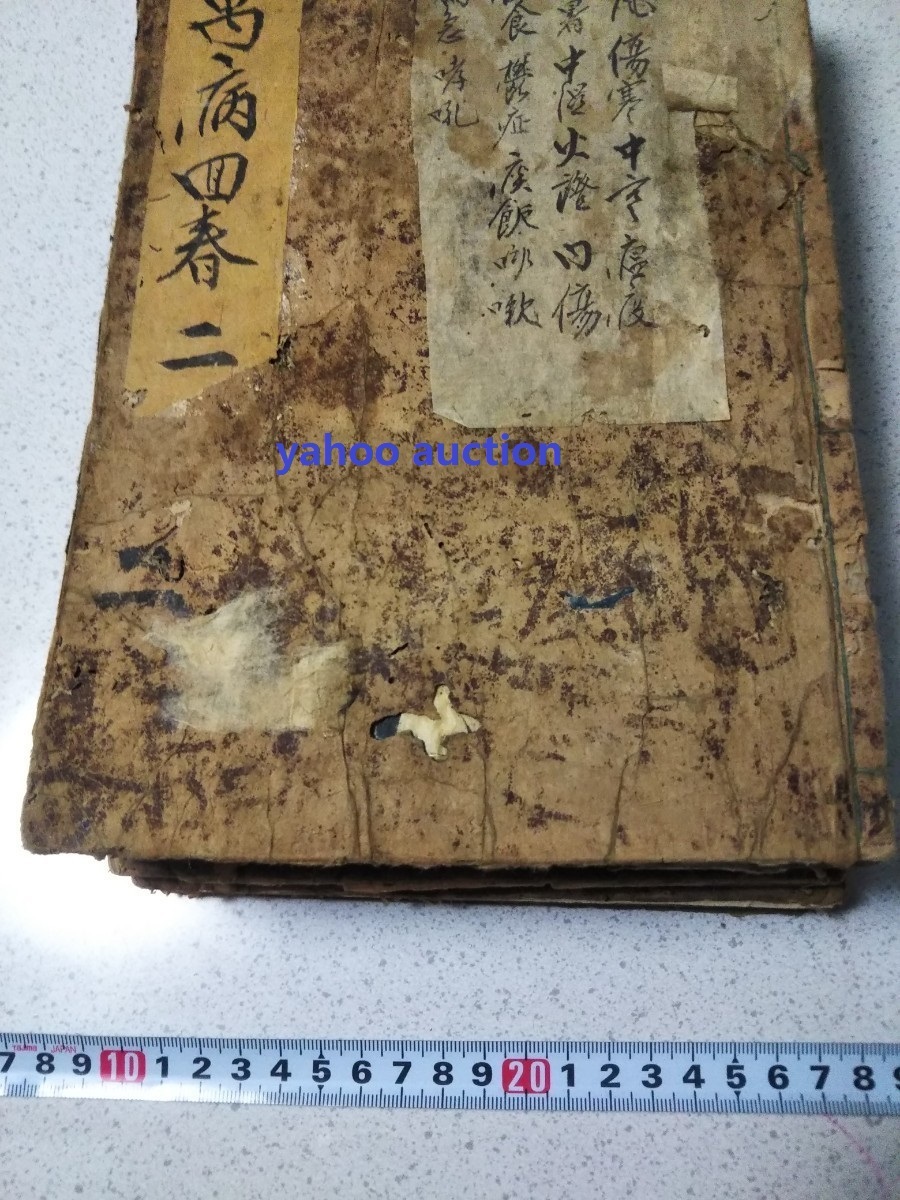 萬病回春 二
傷寒 中寒 瘟疫
中湿 火證 内傷
食 鬱症 痰飲 咳嗽
哮吼
二
yahoo auction
tajima JAPAN
7 8 9 10 1 2 3 4 5 6 7 8 9 20 1 2 3 4 5 6 7 8 9